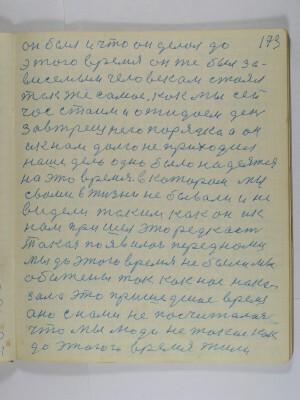 он был и что он делал до 173
этого время он же был за-
висемым человекам стаял
так же самое, как мы сей
час стаим и ожидаем ден
завтрешнего порядка а он
к нам долго не приходил
наше дель одно было надеятся
на это время в котором мы
своми в жизни не бывали и не
видели таким как он их
нам пришел это редкаст
такая появилас перед нами
мы до этого время не были мы
обижены так как нас нака-
зало это пришедшие время
ано с нами не посчиталас
что мы люди не такие как
до этого время жили